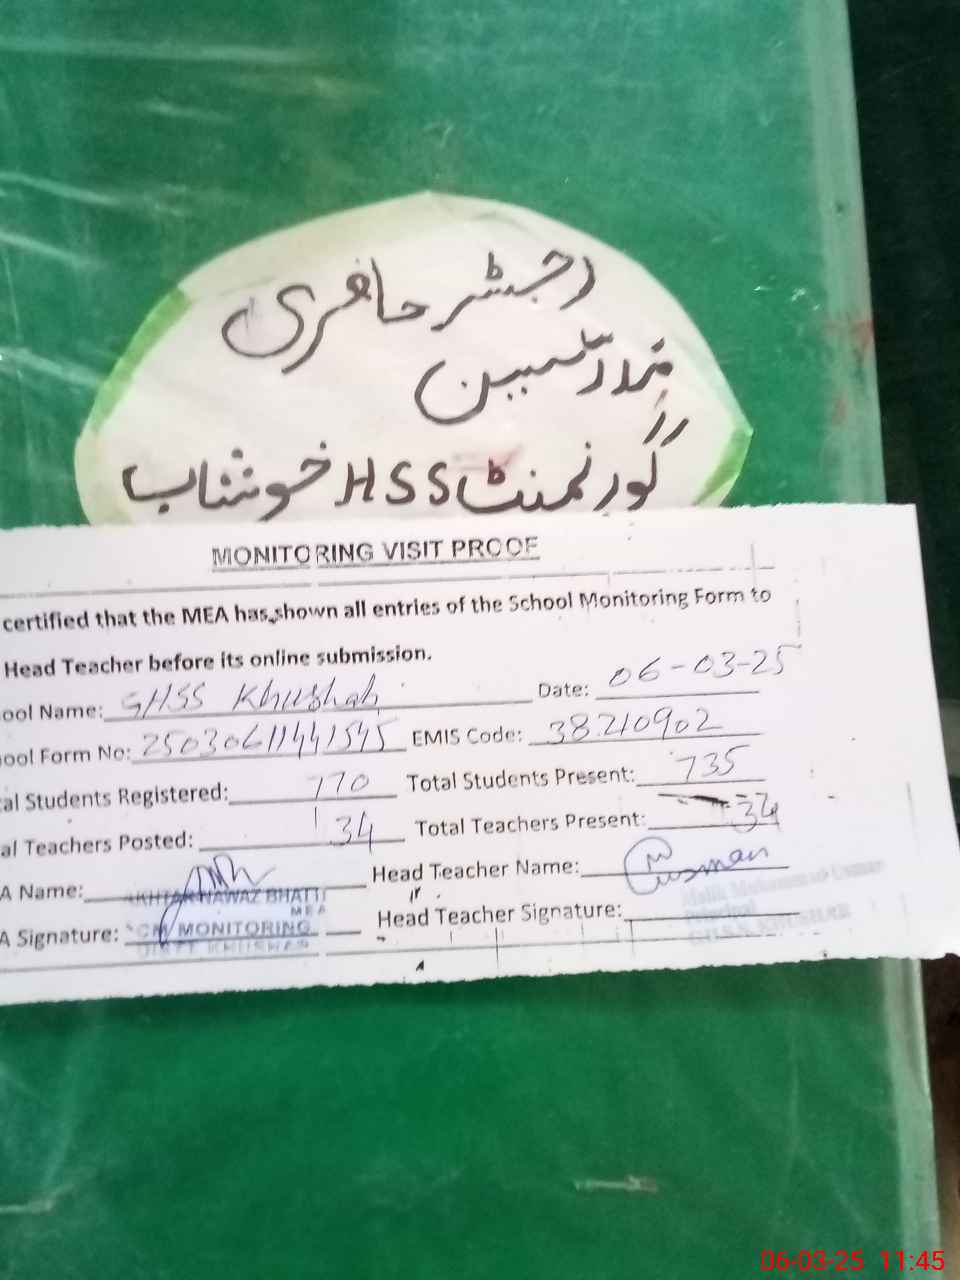 رجسٹر حاضری
مدرسین
گورنمنٹ HSS خوشاب
MONITORING VISIT PROOF
certified that the MEA has shown all entries of the School Monitoring Form to
Head Teacher before its online submission.
ool Name: GHSS Khushab Date: 06-03-25
ool Form No: 25030611441545 EMIS Code: 38210902
al Students Registered: 770 Total Students Present: 735
al Teachers Posted: 34 Total Teachers Present: 34
A Name: AKHTAR NAWAZ BHATTI Head Teacher Name: Usman
MEA
A Signature: CM MONITORING Head Teacher Signature: Principal
DISTT KHUSHAB
06-03-25 11:45